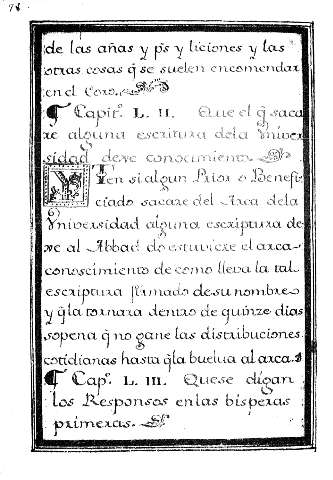 78
de las añas y ps y liciones y las
otras cosas q̃ se suelen encomendar
en el Coro.
¶ Capitº. L. II. Que el q̃ saca
re alguna escritura dela Vniver
sidad deve conocimiento.
YTen si algun Prior o Benefi
ciado sacare del Arca dela
Vniversidad alguna escriptura de
ve al Abbad do estuviere el arca
conoscimiento de como lleva la tal
escriptura firmado de su nombre
y q̃ la tornara dentro de quinze dias
sopena q̃ no gane las distribuciones
cotidianas hasta q̃ la buelua al arca.
¶ Capº. L. III. Que se digan
los Responsos en las bisperas
primeras.